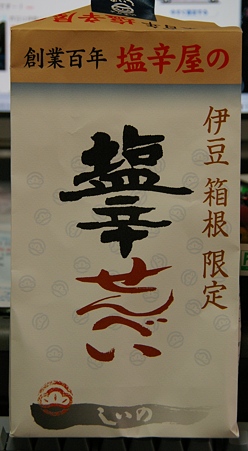 創業百年 塩辛屋の
伊豆 箱根 限定
塩辛
せんべい
しいの